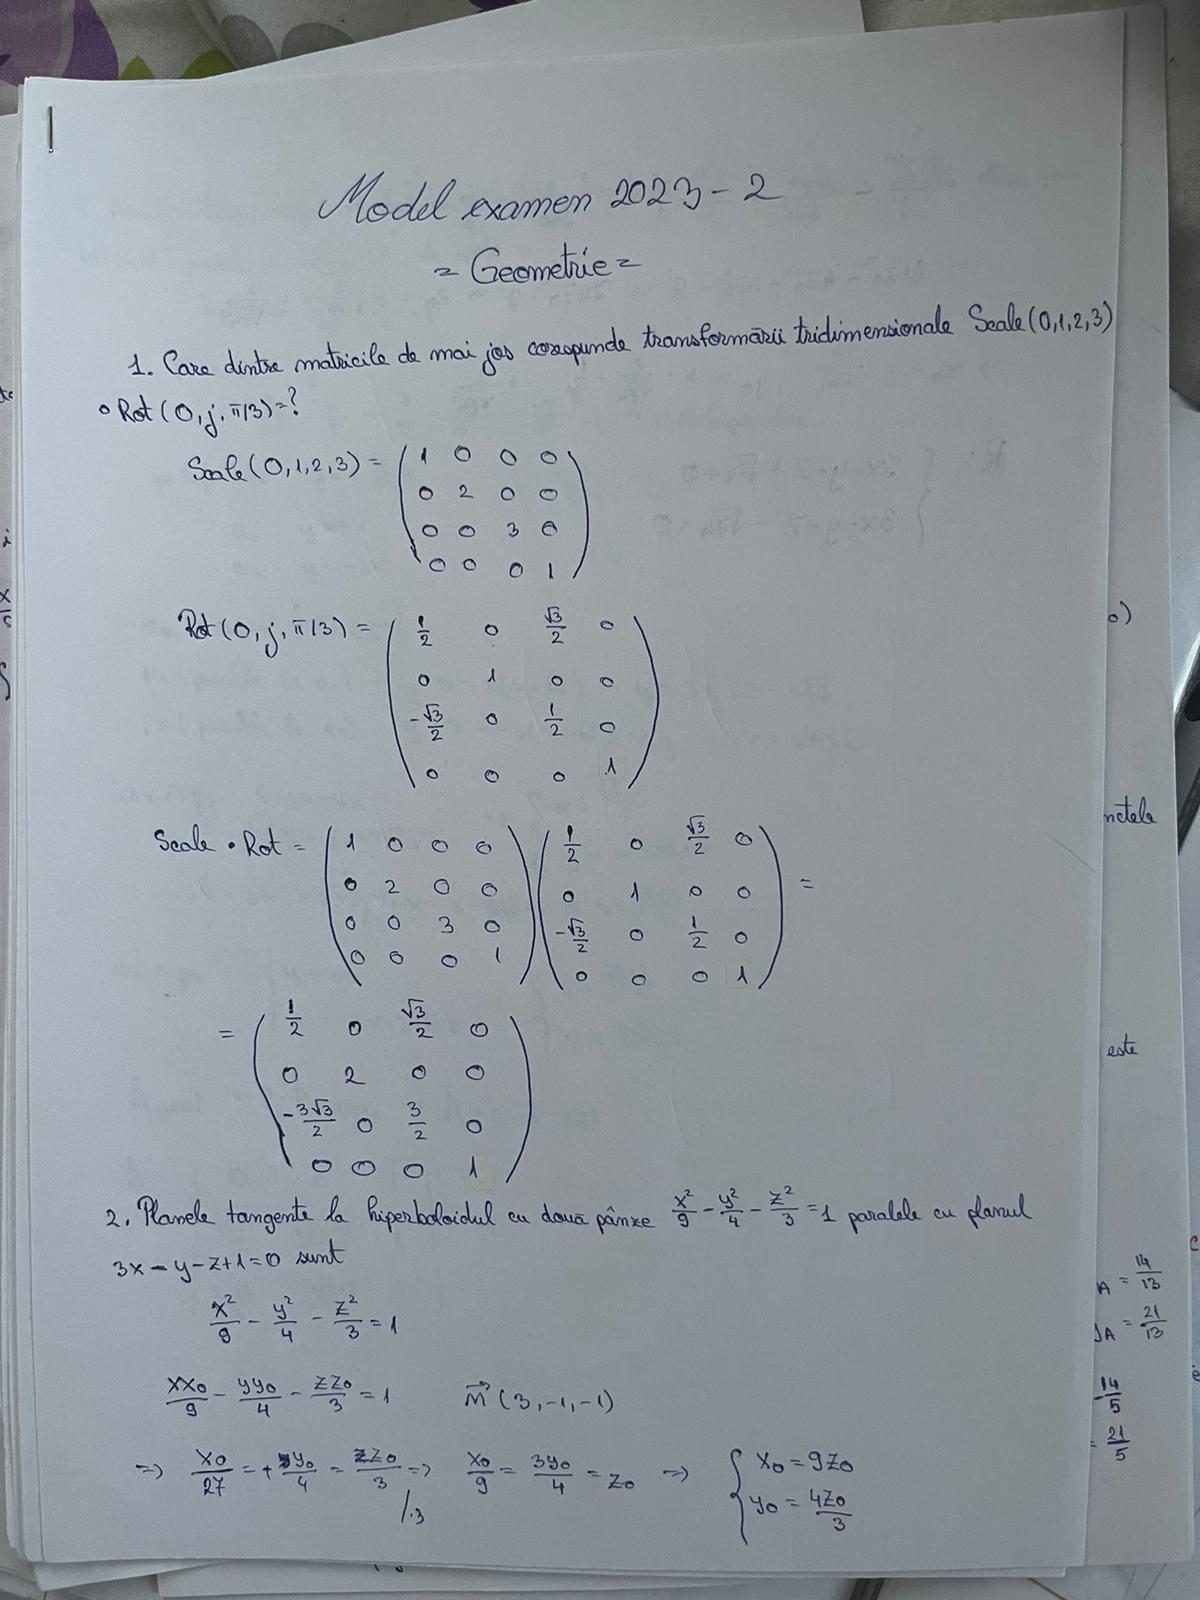 Model examen 2023 - 2
= Geometrie =
1. Care dintre matricile de mai jos corespunde transformării tridimensionale Scale(0,1,2,3)
∘ Rot(0, j, π/3) = ?
Scale(0,1,2,3) = ( 1 0 0 0
0 2 0 0
0 0 3 0
0 0 0 1 )
Rot(0, j, π/3) = ( 1/2 0 √3/2 0
0 1 0 0
-√3/2 0 1/2 0
0 0 0 1 )
Scale • Rot = ( 1 0 0 0 ) ( 1/2 0 √3/2 0
0 2 0 0 0 1 0 0 =
0 0 3 0 -√3/2 0 1/2 0
0 0 0 1 ) 0 0 0 1 )
= ( 1/2 0 √3/2 0
0 2 0 0
-3√3/2 0 3/2 0
0 0 0 1 )
2. Planele tangente la hiperboloidul cu două pânze x²/9 - y²/4 - z²/3 = 1 paralele cu planul
3x - y - z + 1 = 0 sunt
x²/9 - y²/4 - z²/3 = 1
xx₀/9 - yy₀/4 - zz₀/3 = 1 n⃗ (3, -1, -1)
=> x₀/27 = + y₀/4 = z₀/3 => x₀/9 = 3y₀/4 = z₀ => { x₀ = 9z₀
/·3 y₀ = 4z₀/3
o)
nctele
este
A = 14/13
yA = 21/13
14/5
= 21/5